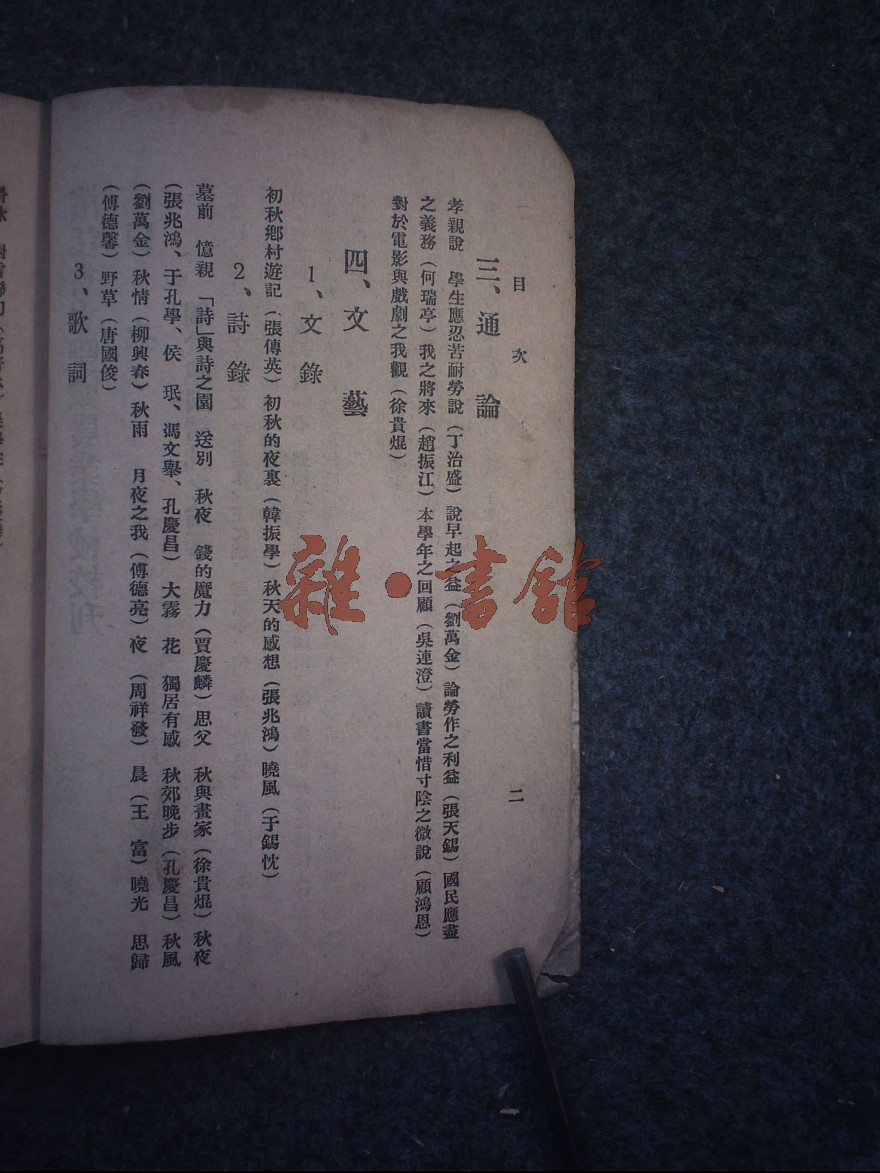 目次
二
三、通論
孝親說　學生應忍苦耐勞說（丁治盛）說早起之益（劉萬金）論勞作之利益（張天錫）國民應盡
之義務（何瑞亭）我之將來（趙振江）本學年之回顧（吳連澄）讀書當惜寸陰之微說（顧鴻恩）
對於電影與戲劇之我觀（徐貴焜）
四、文藝
1、文錄
初秋鄉村遊記（張傳英）初秋的夜裏（韓振學）秋天的感想（張兆鴻）曉風（于錫忱）
2、詩錄
墓前　憶親　「詩」與詩之園　送別　秋夜　錢的魔力（賈慶麟）思父　秋與畫家（徐貴焜）秋夜
（張兆鴻、于孔學、侯　珉、馮文舉、孔慶昌）大霧　花　獨居有感　秋郊晚步（孔慶昌）秋風
（劉萬金）秋情（柳興春）秋雨　月夜之我（傅德亮）夜（周祥發）晨（王　富）曉光　思歸
（傅德馨）野草（唐國俊）
3、歌詞
雜·書館